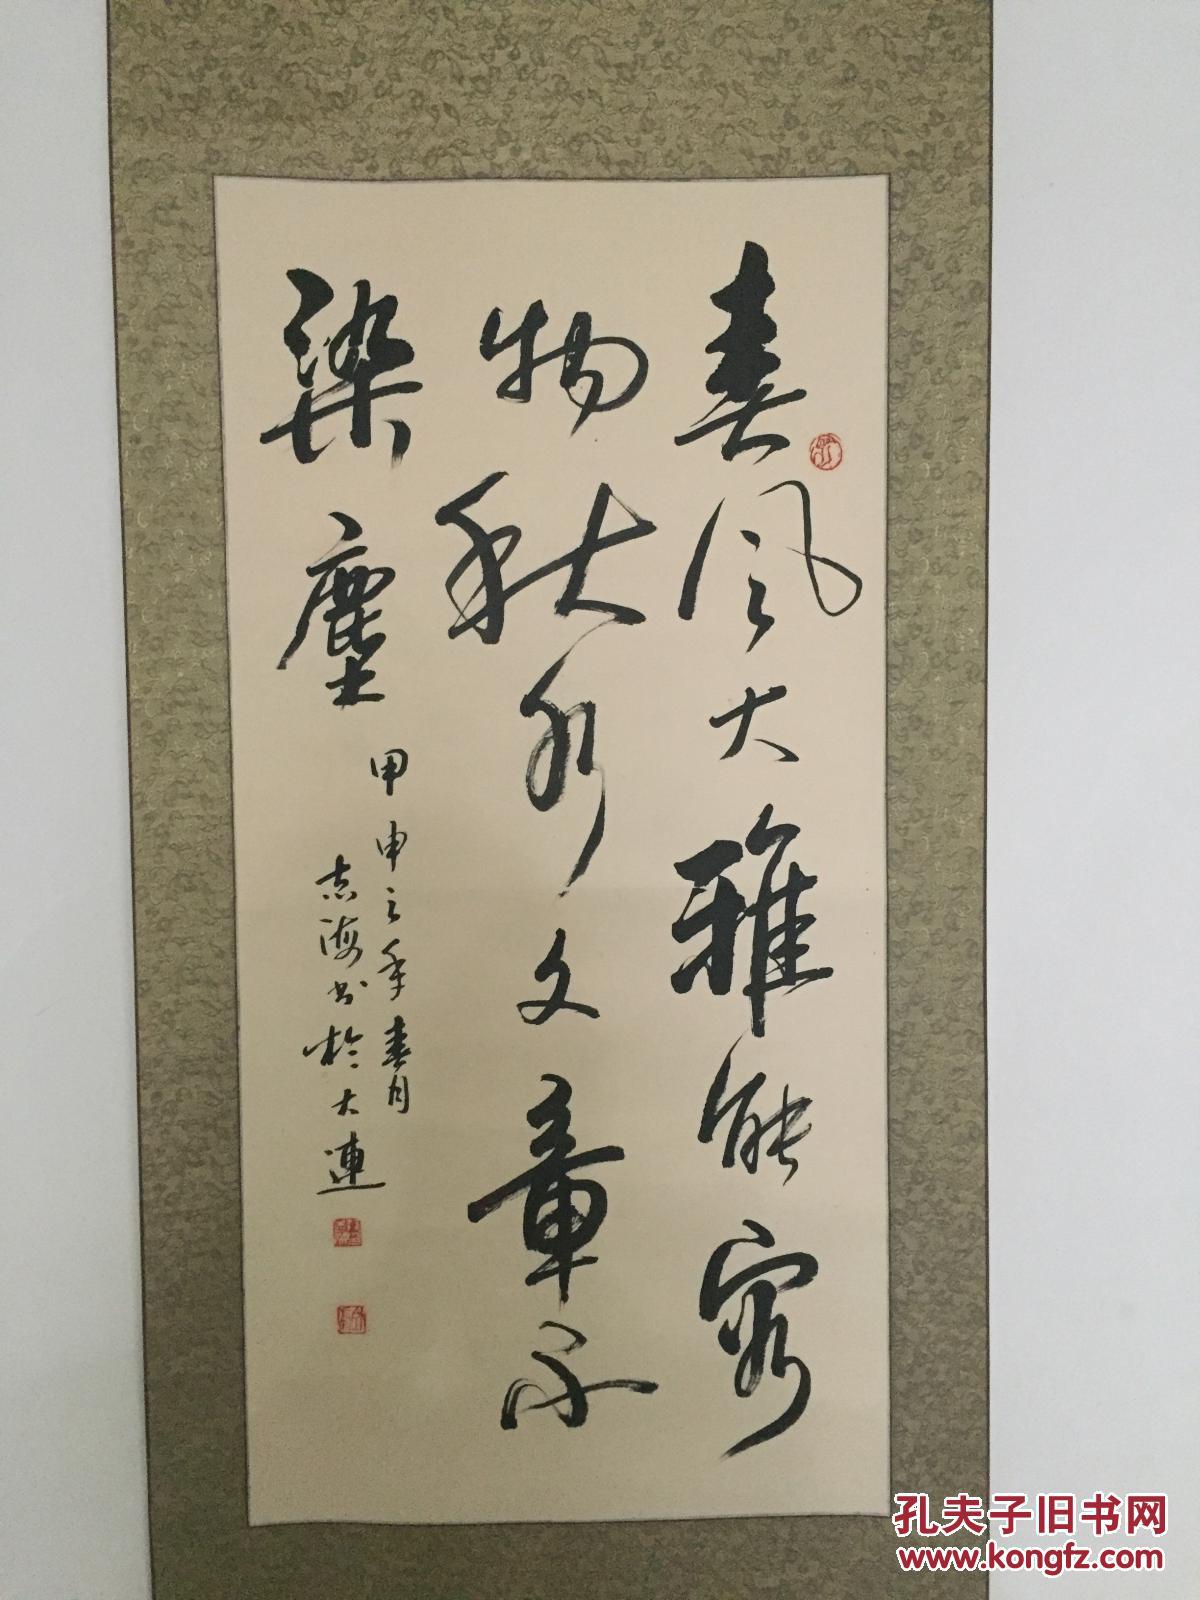 春风大雅能容
物秋水文章不
染塵
甲申之年春月
志海书於大連
孔夫子旧书网
www.kongfz.com